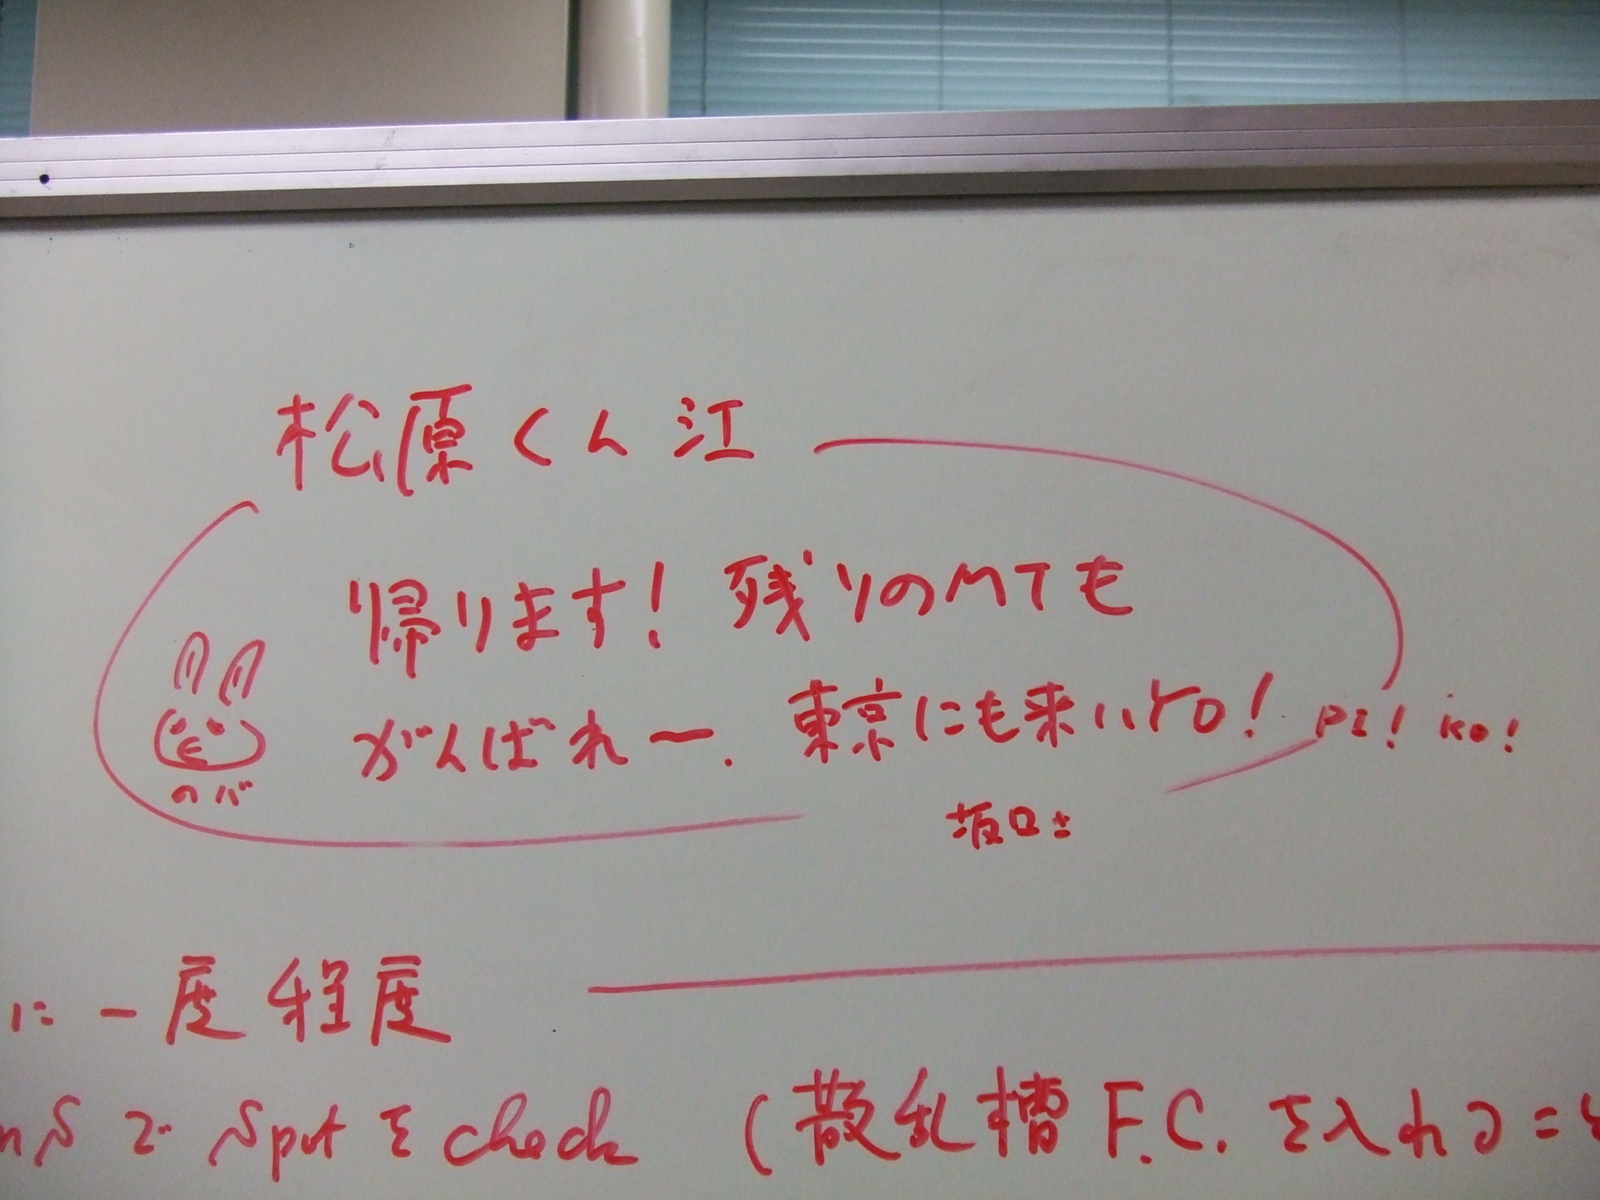 松原くん江
帰ります! 残りのMTも
がんばれー. 東京にも来いYO!
のバ
坂口±
に一度程度
nSで Spotを check (散乱槽 F.C. を入れるこ